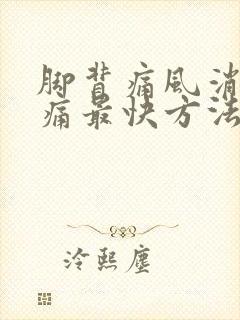 脚背痛风消
痛最快方法
冷熙尘